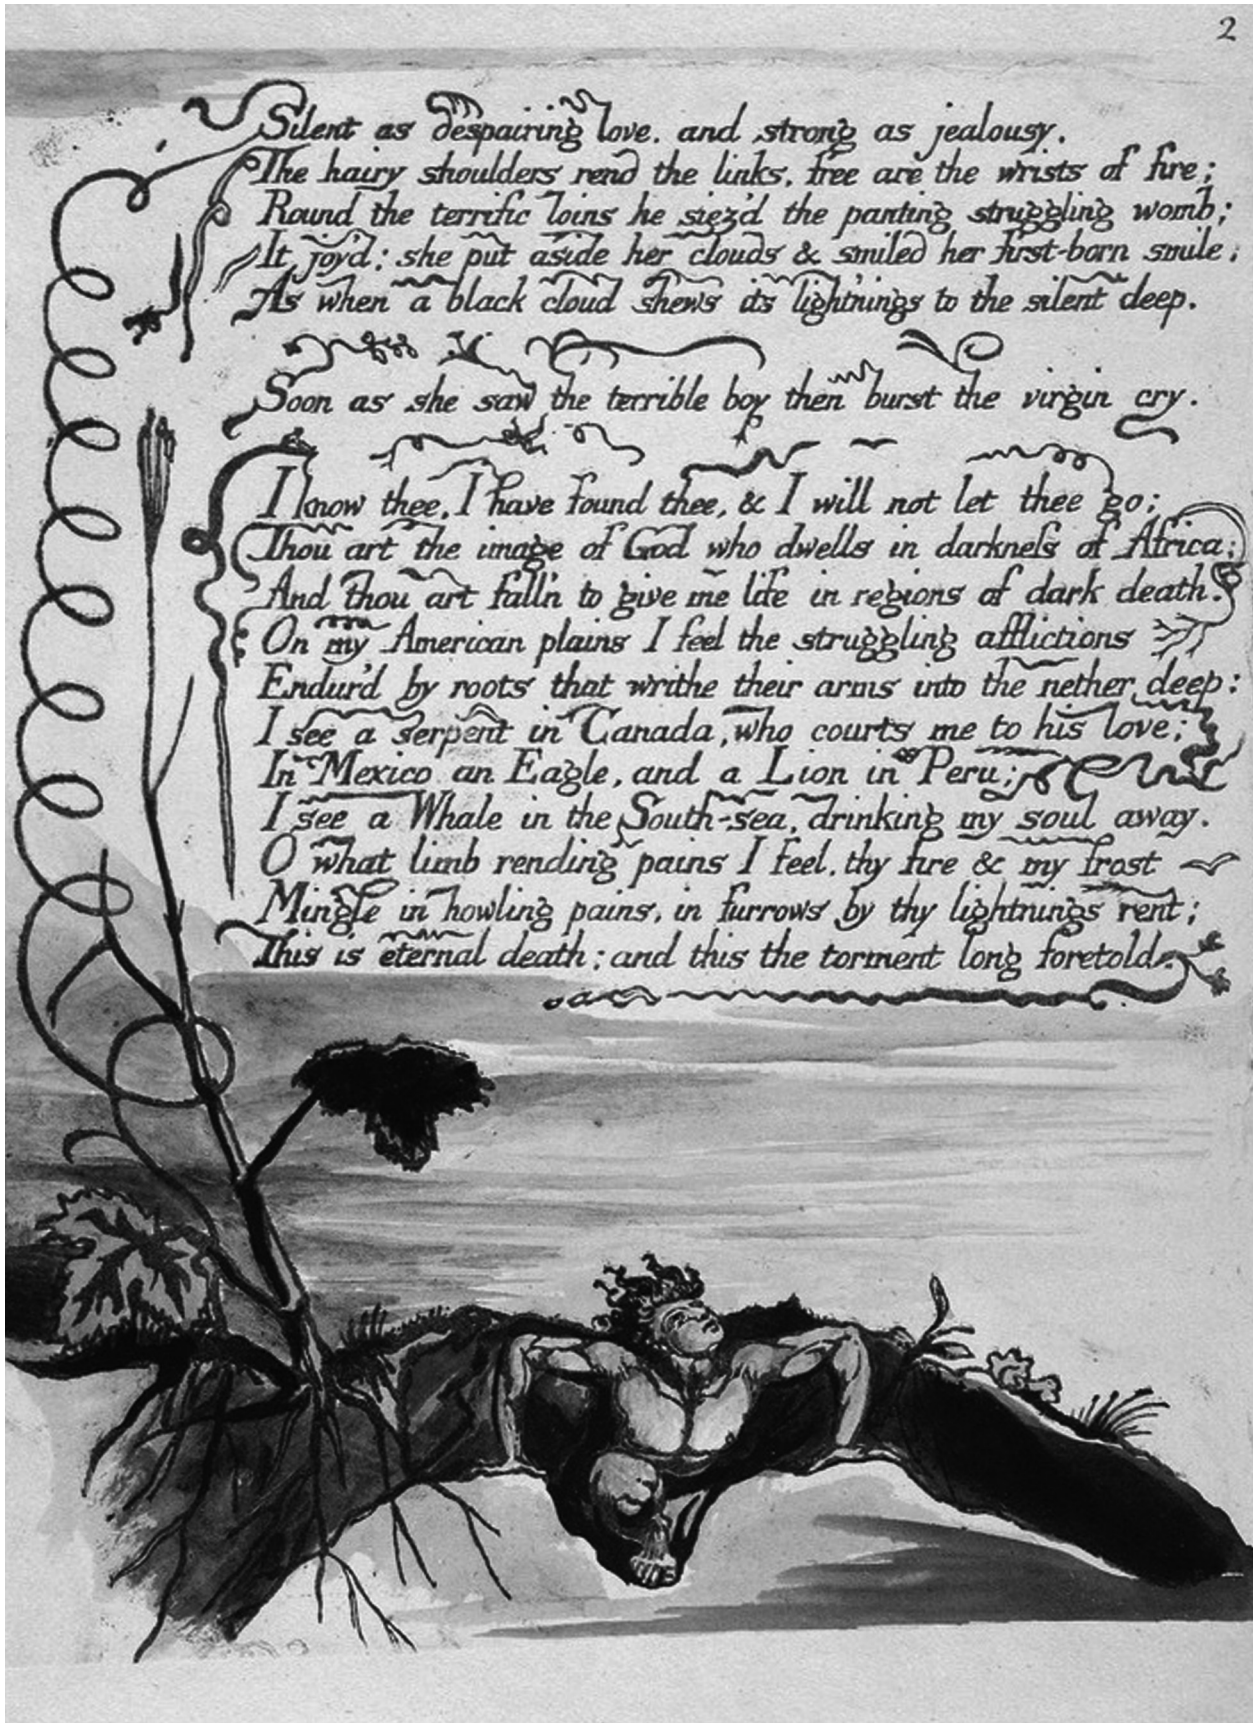 2
Silent as despairing love, and strong as jealousy.
The hairy shoulders rend the links, free are the wrists of fire;
Round the terrific loins he siez'd the panting struggling womb;
It joy'd: she put aside her clouds & smiled her first-born smile;
As when a black cloud shews its light'nings to the silent deep.
Soon as she saw the terrible boy then burst the virgin cry.
I know thee, I have found thee, & I will not let thee go;
Thou art the image of God who dwells in darkneſs of Africa;
And thou art fall'n to give me life in regions of dark death.
On my American plains I feel the struggling afflictions
Endur'd by roots that writhe their arms into the nether deep:
I see a serpent in Canada, who courts me to his love;
In Mexico an Eagle, and a Lion in Peru;
I see a Whale in the South-sea, drinking my soul away.
O what limb rending pains I feel, thy fire & my frost
Mingle in howling pains, in furrows by thy lightnings rent;
This is eternal death; and this the torment long foretold.